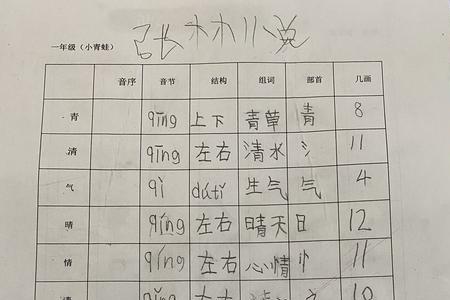 一年级（小青蛙） 张木木小说
音序 音节 结构 组词 部首 几画
青 qīng 上下 青草 青 8
清 qīng 左右 清水 氵 11
气 qì dútǐ 生气 气 4
晴 qíng 左右 晴天 日 12
情 qíng 左右 心情 忄 11
请 qǐng 左右 10